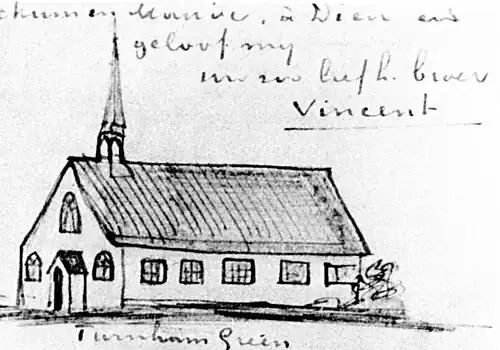 à Dieu en
geloof my
uw zoo liefh. broer
Vincent
Turnham Green